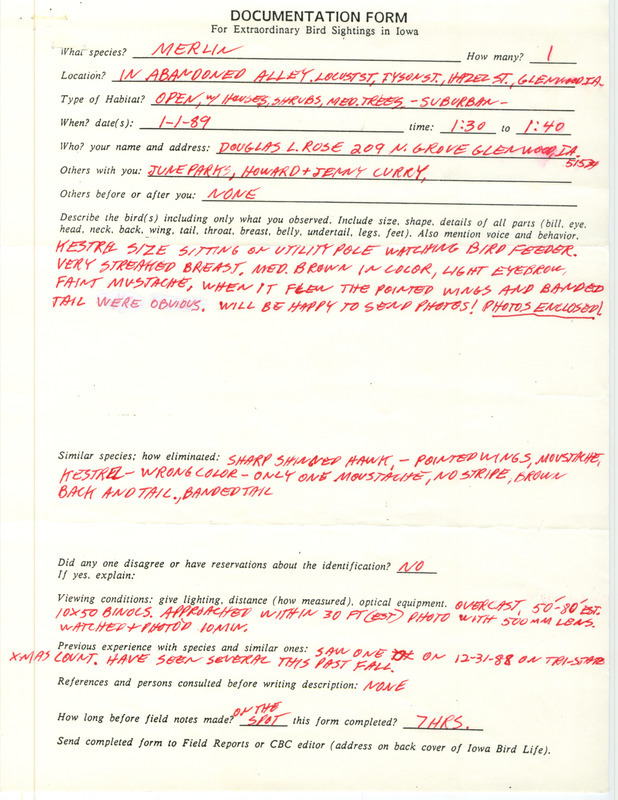 DOCUMENTATION FORM
For Extraordinary Bird Sightings in Iowa
What species? MERLIN How many? 1
Location? IN ABANDONED ALLEY, LOCUST ST, TYSON ST, HAZEL ST, GLENWOOD IA.
Type of Habitat? OPEN, W/ HOUSES, SHRUBS, MED. TREES, - SUBURBAN -
When? date(s): 1-1-89 time: 1:30 to 1:40
Who? your name and address: DOUGLAS L. ROSE 209 N. GROVE GLENWOOD, IA.
51534
Others with you: JUNE PARKS, HOWARD + JENNY CURRY,
Others before or after you: NONE
Describe the bird(s) including only what you observed. Include size, shape, details of all parts (bill, eye,
head, neck, back, wing, tail, throat, breast, belly, undertail, legs, feet). Also mention voice and behavior.
KESTREL SIZE SITTING ON UTILITY POLE WATCHING BIRD FEEDER.
VERY STREAKED BREAST, MED. BROWN IN COLOR, LIGHT EYEBROW,
FAINT MUSTACHE, WHEN IT FLEW THE POINTED WINGS AND BANDED
TAIL WERE OBVIOUS. WILL BE HAPPY TO SEND PHOTOS! PHOTOS ENCLOSED!
Similar species; how eliminated: SHARP SHINNED HAWK, - POINTED WINGS, MOUSTACHE,
KESTREL - WRONG COLOR - ONLY ONE MOUSTACHE, NO STRIPE, BROWN
BACK AND TAIL., BANDED TAIL
Did any one disagree or have reservations about the identification? NO
If yes, explain:
Viewing conditions: give lighting, distance (how measured), optical equipment. OVERCAST, 50'-80' EST.
10X50 BINOCS. APPROACHED WITHIN 30 FT (EST) PHOTO WITH 500MM LENS.
WATCHED + PHOTO'D 10 MIN.
Previous experience with species and similar ones: SAW ONE ON 12-31-88 ON TRI-STATE
XMAS COUNT. HAVE SEEN SEVERAL THIS PAST FALL.
References and persons consulted before writing description: NONE
How long before field notes made? ON THE SPOT this form completed? 7 HRS.
Send completed form to Field Reports or CBC editor (address on back cover of Iowa Bird Life).